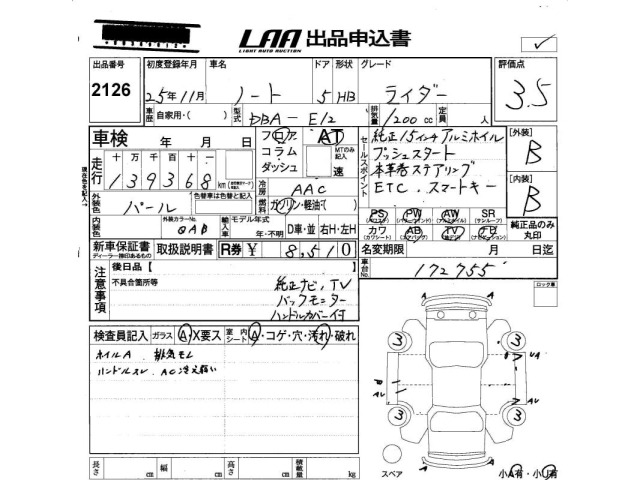 LAA 出品申込書
LIGHT AUTO AUCTION
出品番号
2126
初度登録年月
25年11月
車名
ノート
ドア
5
形状
HB
グレード
ライダー
評価点
3.5
車歴
自家用・( )
型式
DBA-E12
排気量
1200 cc
定員
人
車検 年 月 日
フロア
コラム
ダッシュ
AT
MTのみ記入
速
セールスポイント
純正15インチアルミホイル
プッシュスタート
本革巻ステアリング
ETC. スマートキー
[外装]
B
[内装]
B
走行
十 万 千 百 十 一
139368 km
冷房
AAC
燃料
ガソリン・軽油で( )
外装色
パール
色替車は色替と記入
内装色
外装カラーNo.
QAB
輸入車
モデル年式
年・不明
D車・並
右H・左H
PS PW AW SR
(サンルーフ)
カワ AB TV ナビ
(カワシート)
純正品のみ丸印
新車保証書
ディーラー捺印あるもの
取扱説明書
R券 ¥ 8,510
名変期限 月 日迄
車台No.
172755
注意事項
後日品[ ]
不具合箇所等
純正ナビ、TV
バックモニター
ハンドルカバー付
検査員記入
ガラス A・X要ス
室内シート A・コゲ・穴・汚れ・破れ
ホイルA 排気モレ
ハンドルスレ AC冷え弱い
長さ cm 幅 cm 高さ cm 積載量 kg
スペア
3
3
3
3
UA
AU
B
AU
小A有・小U有